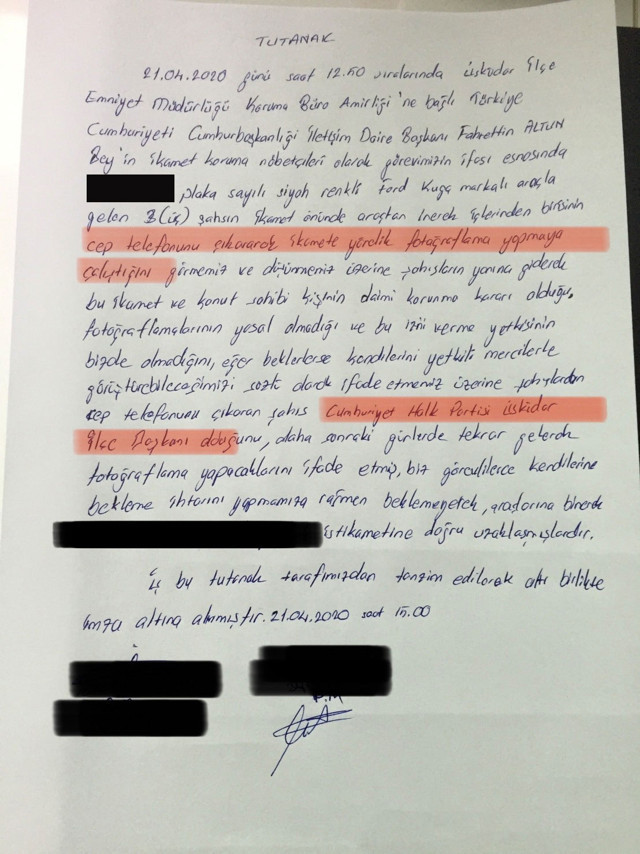 TUTANAK
21.04.2020 günü saat 12.50 sıralarında üsküdar ilçe
Emniyet Müdürlüğü Koruma Büro Amirliği'ne bağlı Türkiye
Cumhuriyeti Cumhurbaşkanlığı İletişim Daire Başkanı Fahrettin ALTUN
Bey'in ikamet koruma nöbetçileri olarak görevimizin ifası esnasında
plaka sayılı siyah renkli Ford Kuga markalı araçla
gelen 3 (üç) şahsın ikamet önünde araçtan inerek içlerinden birisinin
cep telefonunu çıkararak ikamete yönelik fotoğraflama yapmaya
çalıştığını görmemiz ve üzerine şahısların yanına giderek
bu ikamet ve konut sahibi kişinin daimi korunma kararı olduğu,
fotoğraflamalarının yasal olmadığı ve bu izni verme yetkisinin
bizde olmadığını, eğer beklerlerse kendilerini yetkili mercilerle
görüştürebileceğimizi sözlü olarak ifade etmemiz üzerine şahıslardan
cep telefonunu çıkaran şahıs Cumhuriyet Halk Partisi üsküdar
İlçe Başkanı olduğunu, daha sonraki günlerde tekrar gelerek
fotoğraflama yapacaklarını ifade etmiş, biz görevlilerce kendilerine
bekleme ihtarını yapmamıza rağmen beklemeyerek, araçlarına binerek
istikametine doğru uzaklaşmışlardır.
İş bu tutanak tarafımızdan tanzim edilerek altı birlikte
imza altına alınmıştır. 21.04.2020 saat 15.00